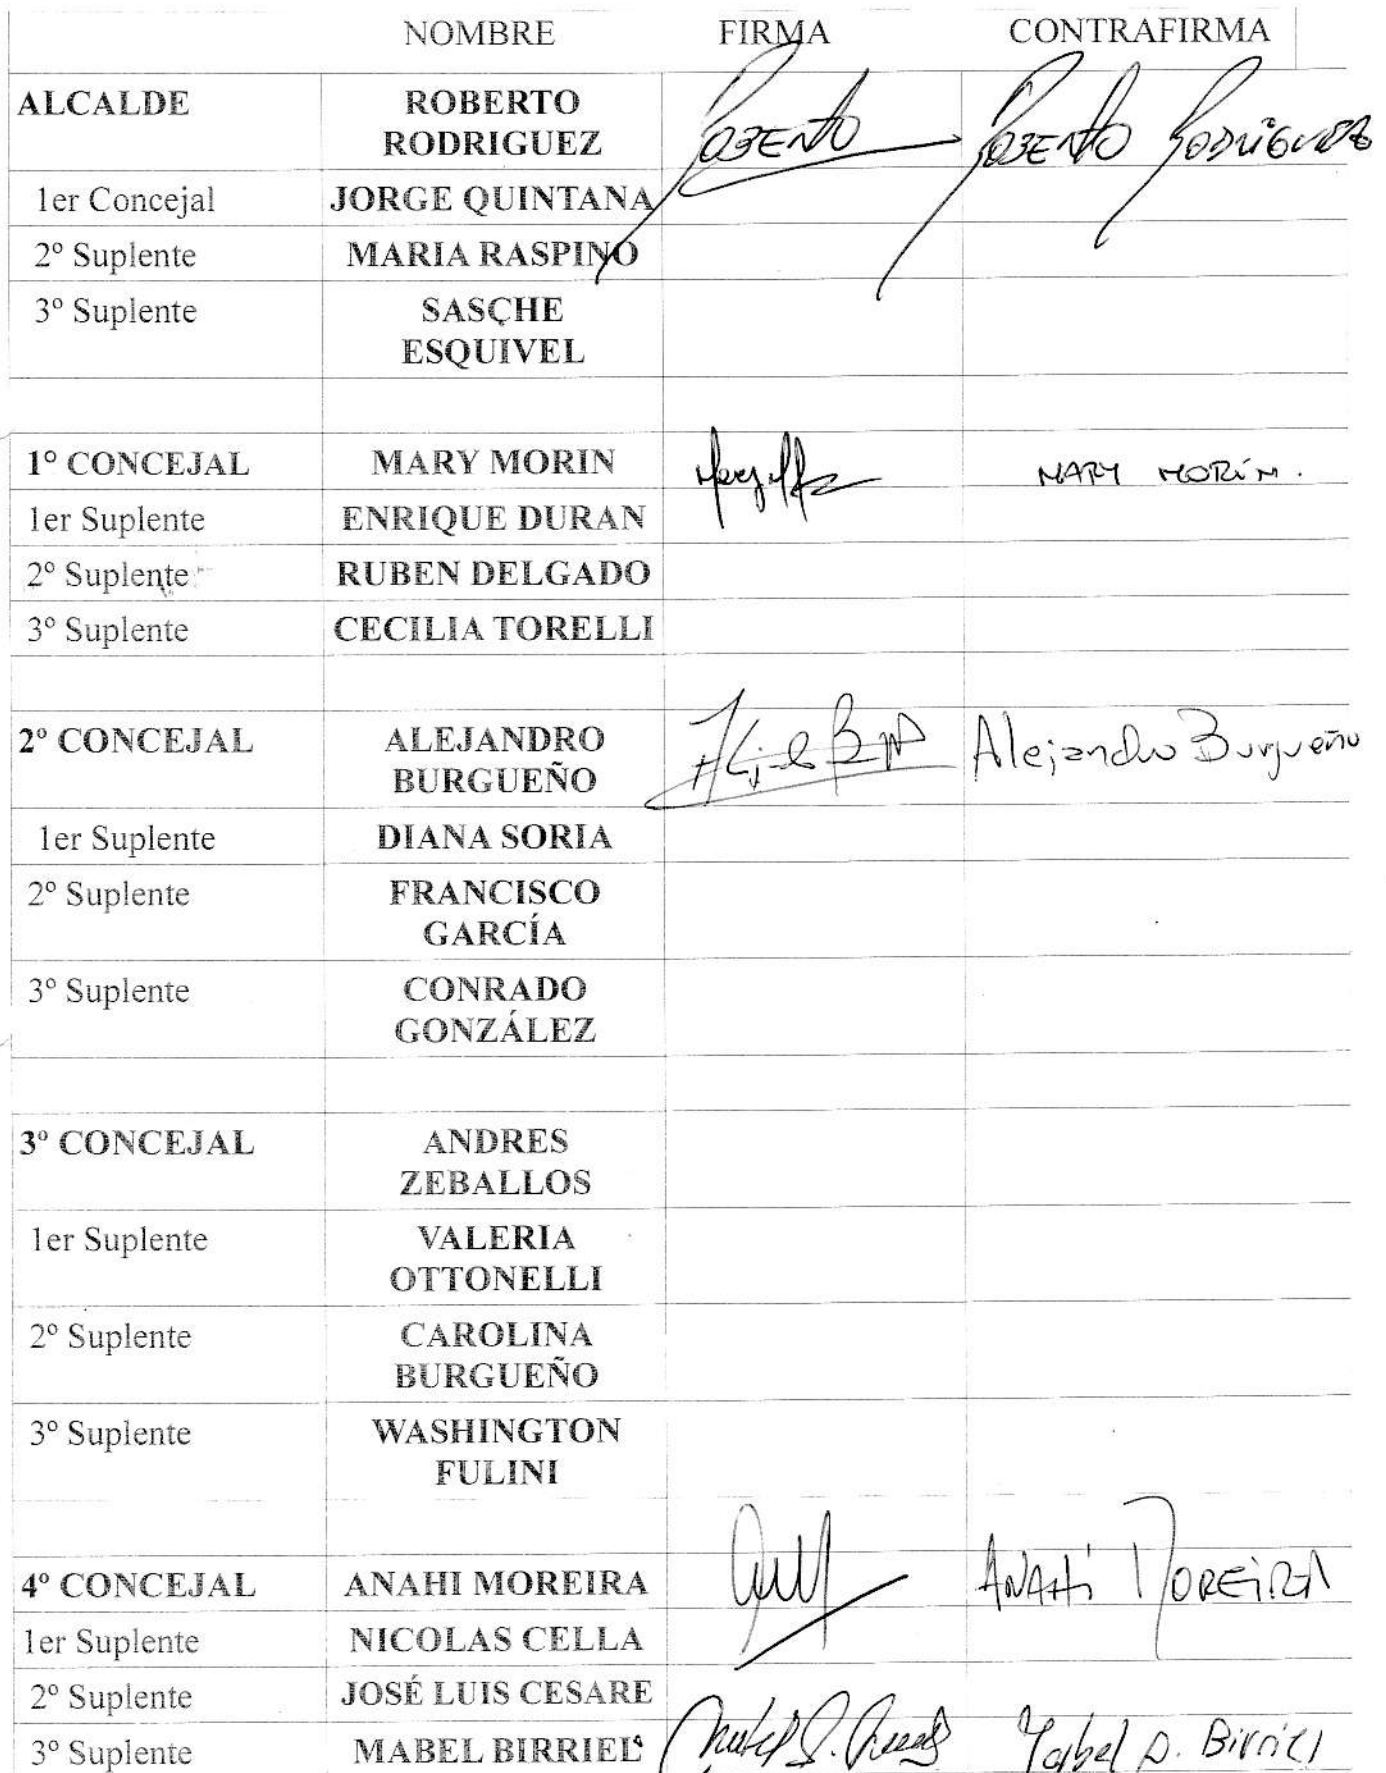 NOMBRE FIRMA CONTRAFIRMA
ALCALDE ROBERTO
RODRIGUEZ ROBERTO ROBERTO RODRIGUEZ
1er Concejal JORGE QUINTANA
2º Suplente MARIA RASPINO
3º Suplente SASCHE
ESQUIVEL
1º CONCEJAL MARY MORIN MARY MORÍN.
1er Suplente ENRIQUE DURAN
2º Suplente RUBEN DELGADO
3º Suplente CECILIA TORELLI
2º CONCEJAL ALEJANDRO
BURGUEÑO Alejandro Burgueño
1er Suplente DIANA SORIA
2º Suplente FRANCISCO
GARCÍA
3º Suplente CONRADO
GONZÁLEZ
3º CONCEJAL ANDRES
ZEBALLOS
1er Suplente VALERIA
OTTONELLI
2º Suplente CAROLINA
BURGUEÑO
3º Suplente WASHINGTON
FULINI
4º CONCEJAL ANAHI MOREIRA ANAHÍ MOREIRA
1er Suplente NICOLAS CELLA
2º Suplente JOSÉ LUIS CESARE
3º Suplente MABEL BIRRIEL Mabel D. Birriel